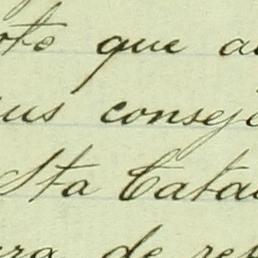 ote que a
us consej
Sta Catal
ra de res